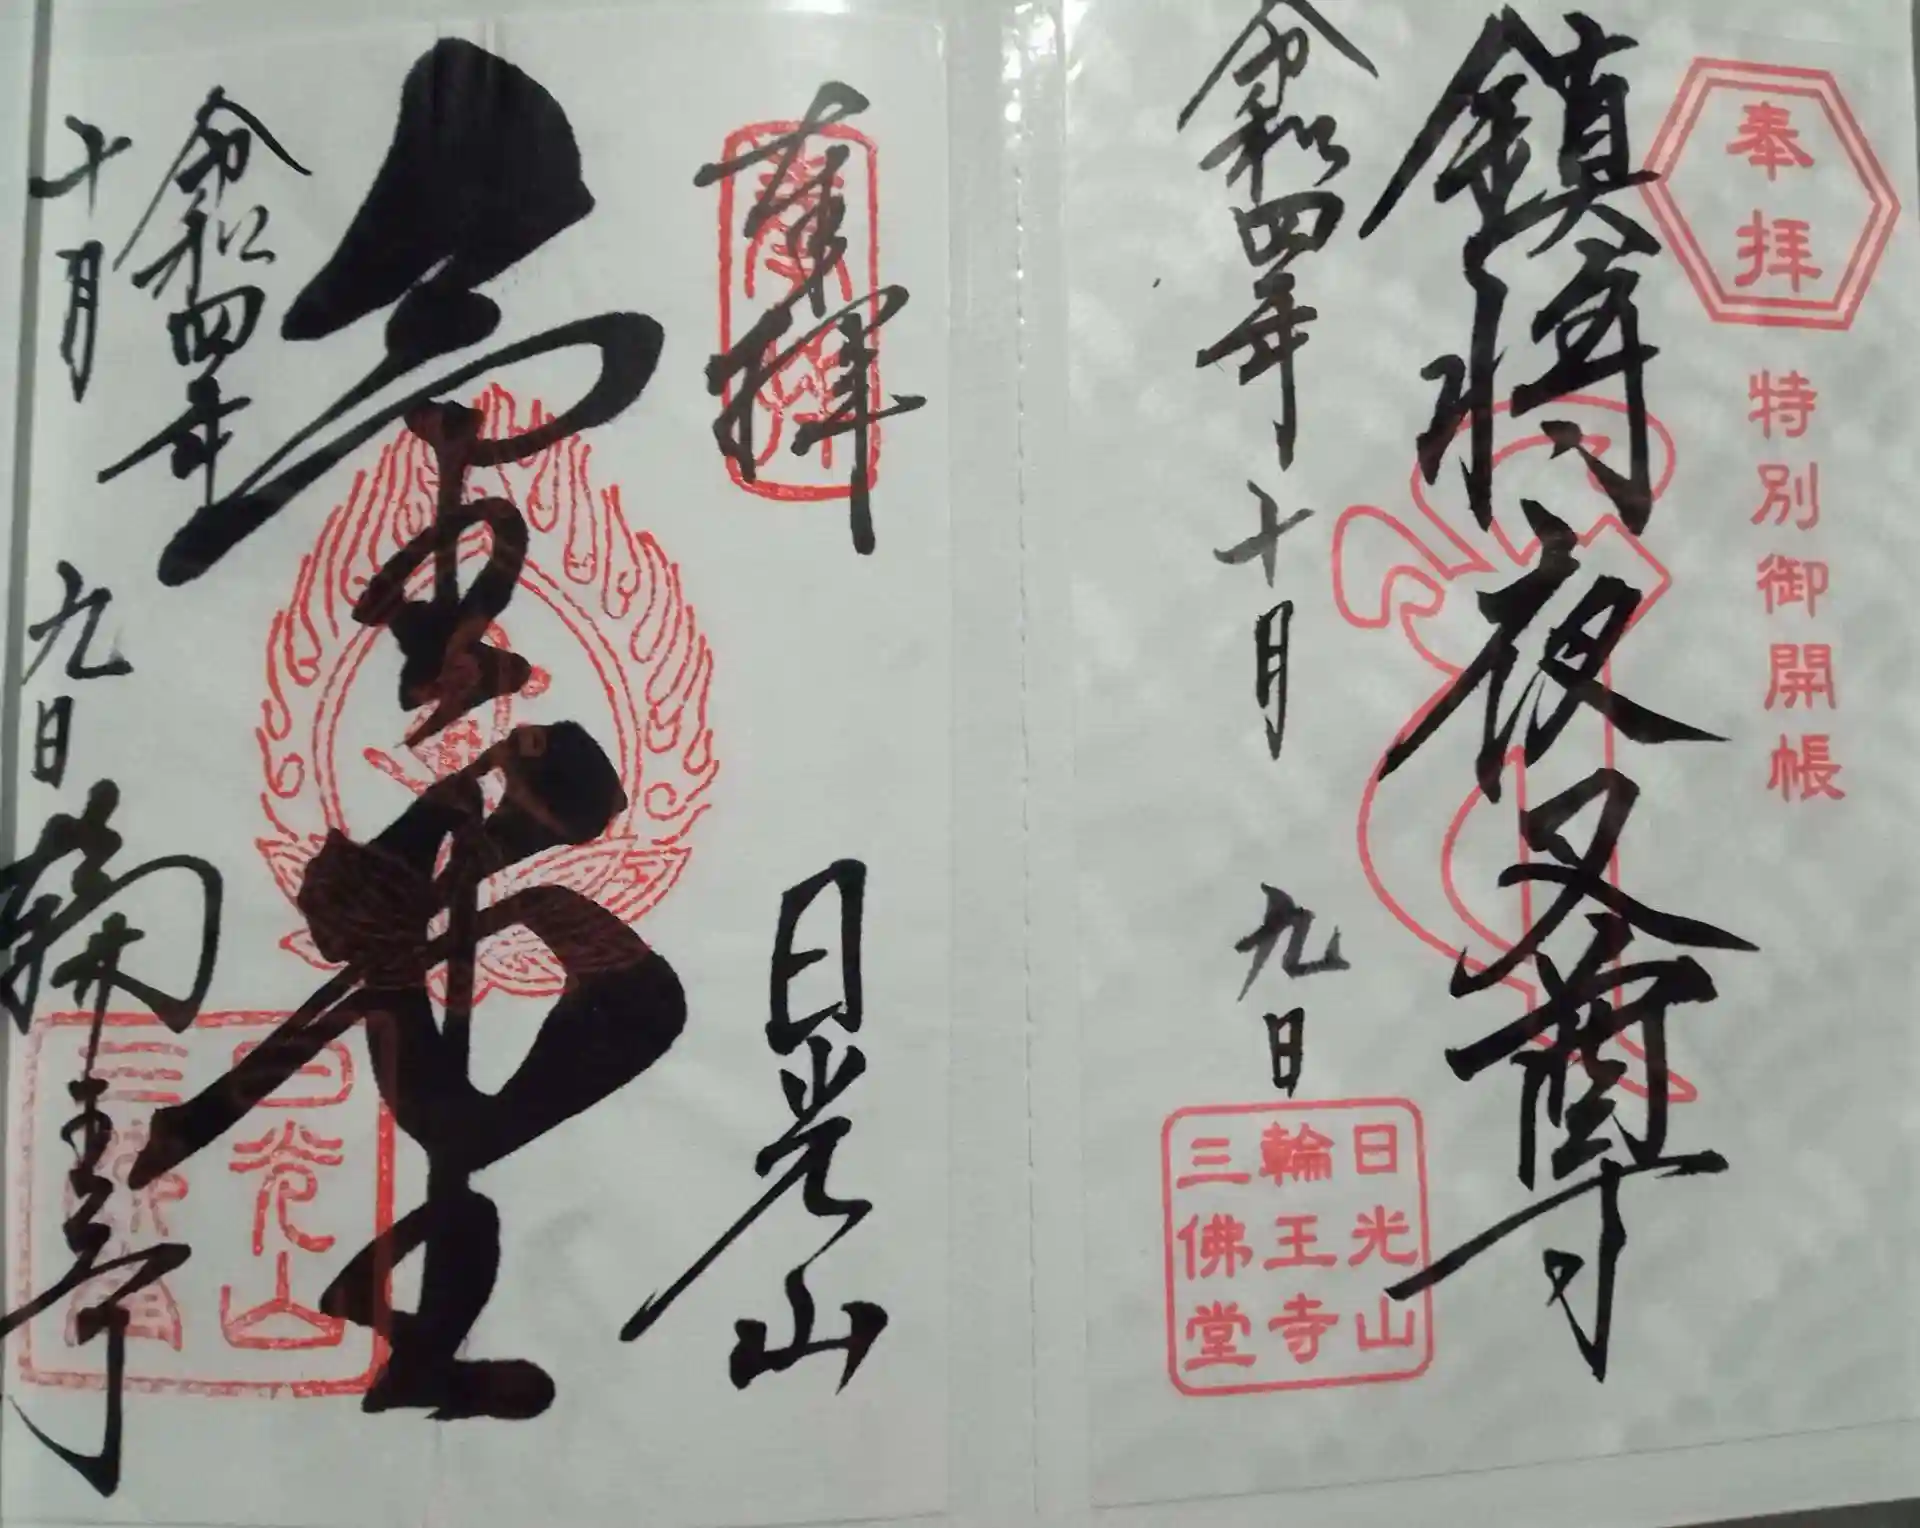 奉拝
特別御開帳
鎮将夜叉尊
令和四年十月九日
日光山
輪王寺
三佛堂
奉拝 日光山
金堂
令和四年
十月九日 輪王寺
日光山